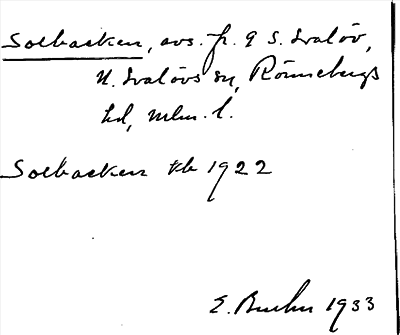 Solbacken, avs. fr. 9 S. Svalöv,
N. Svalövs sn, Rönnebergs
hd, Mlm. l.
Solbacken kb 1922
E. 1933